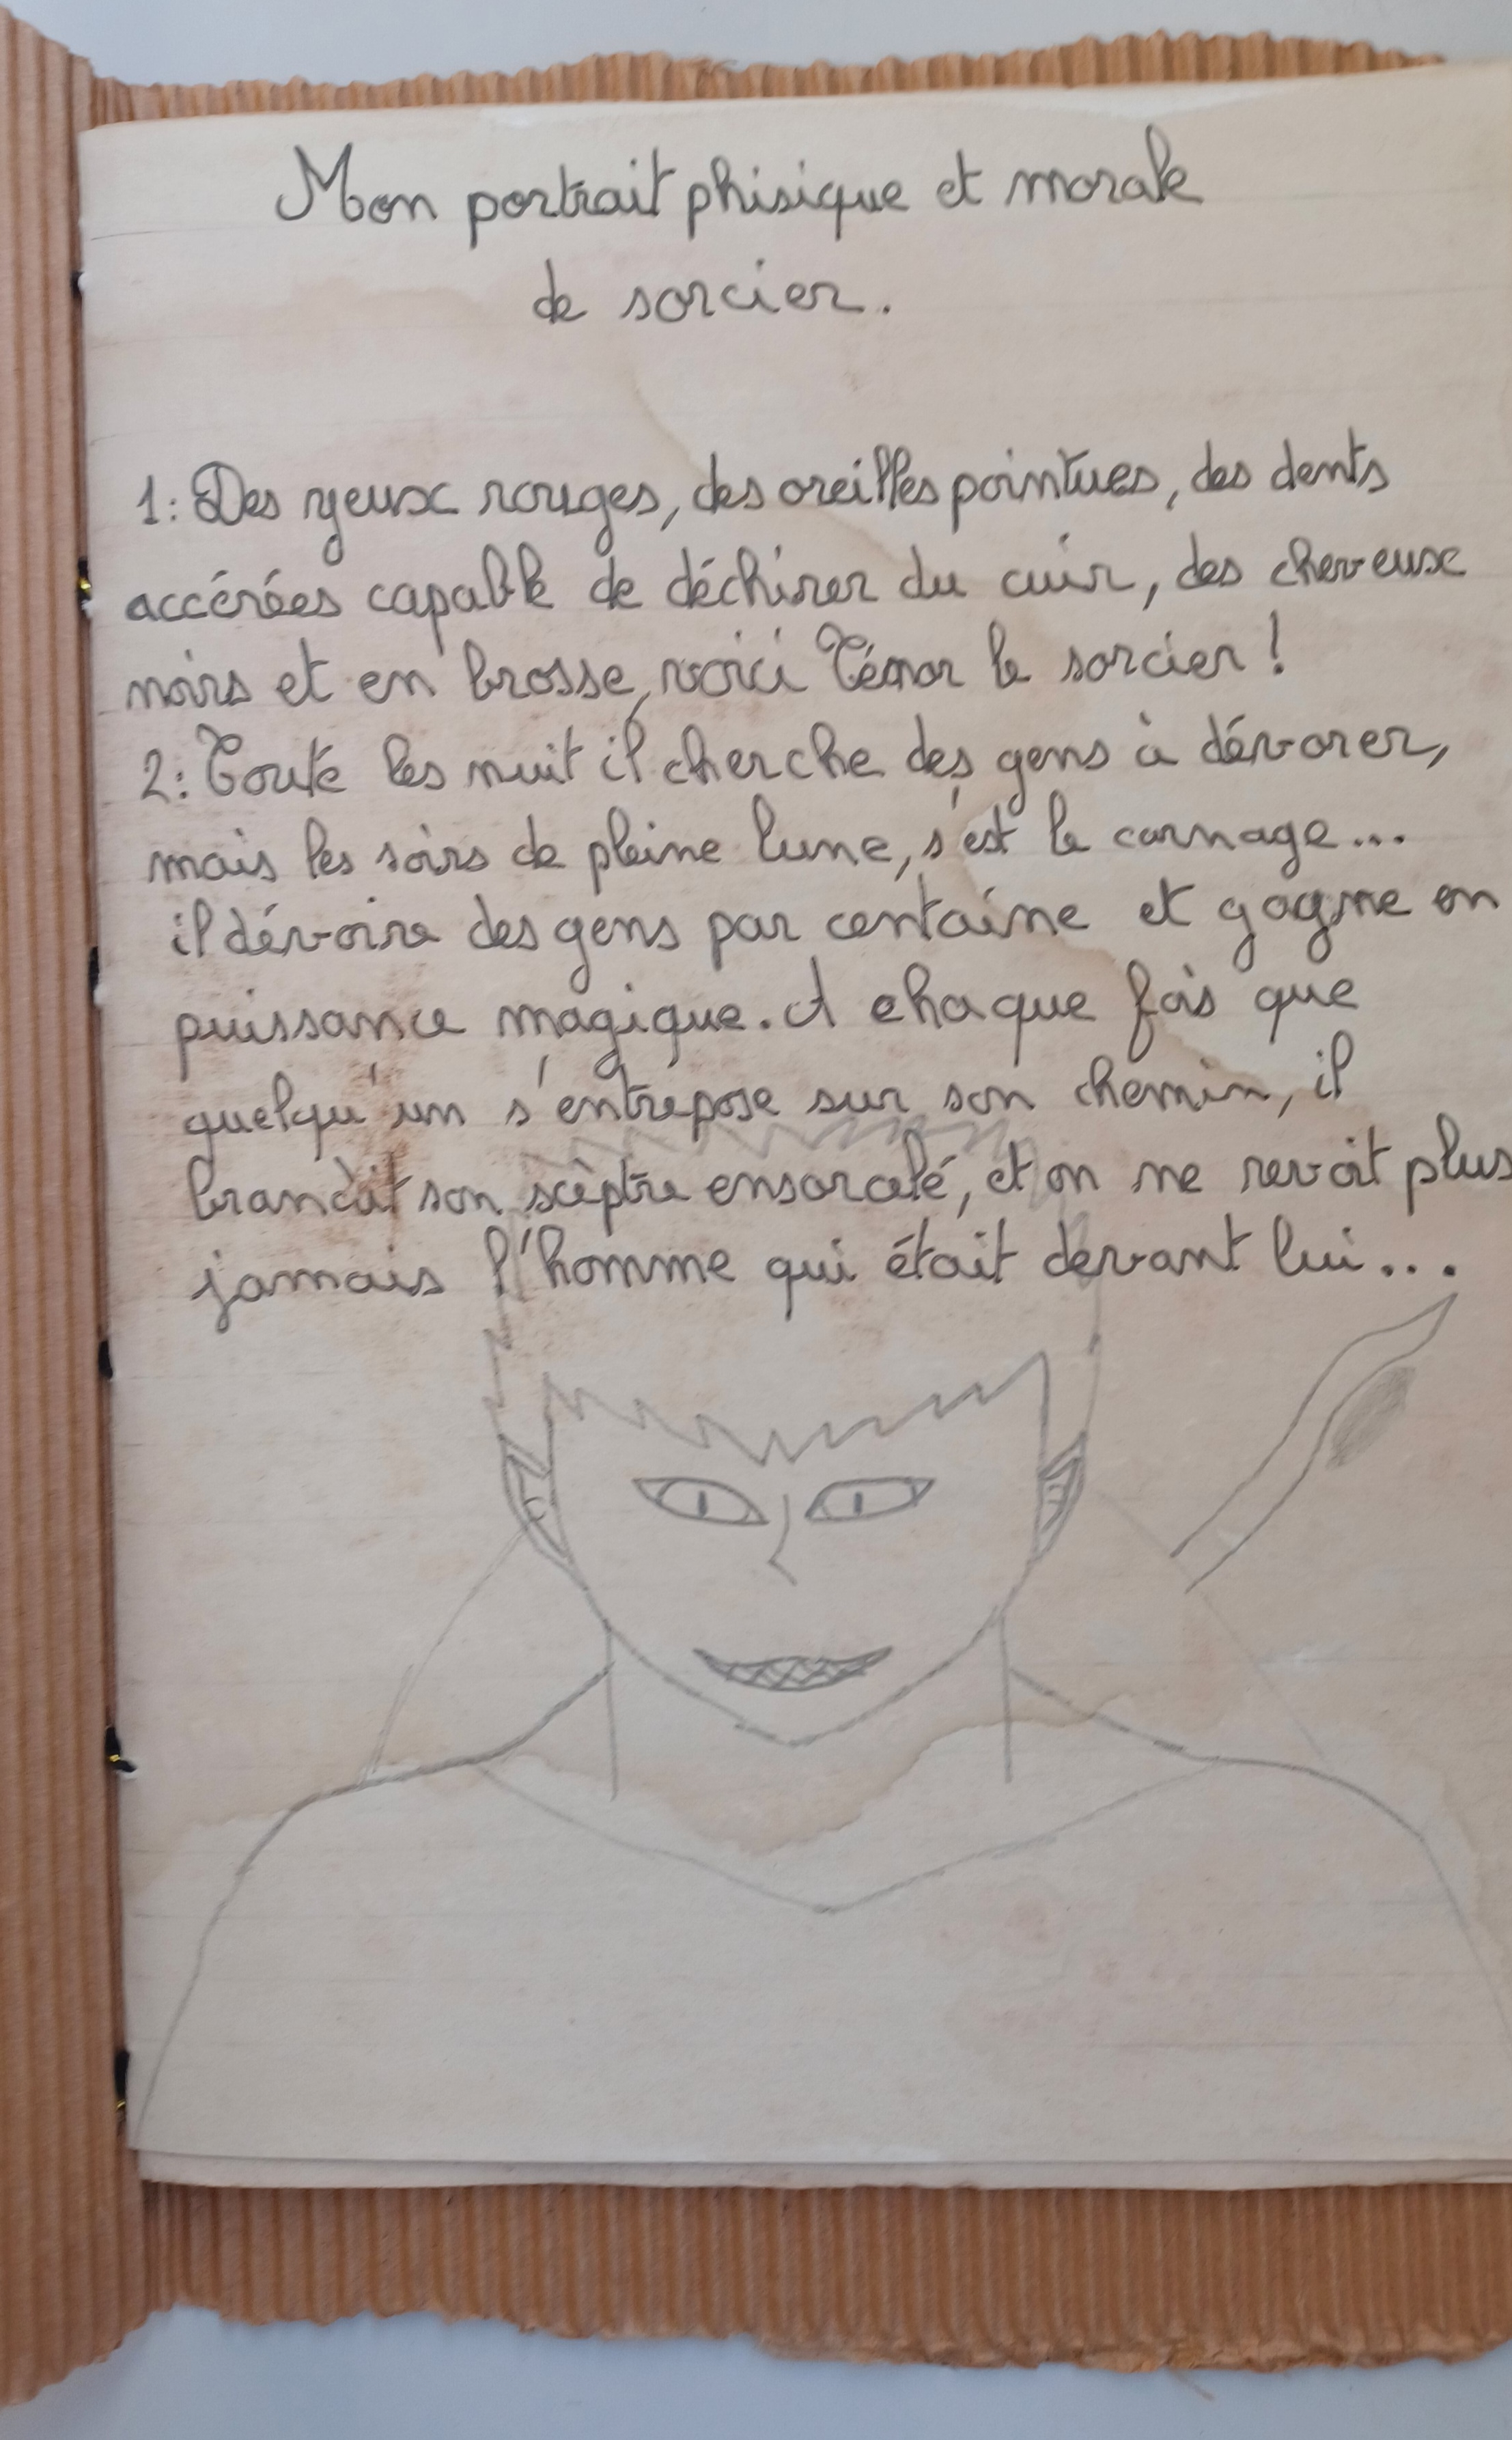 Mon portrait phisique et morale
de sorcier.
1: Des yeux rouges, des oreilles pointues, des dents
accérées capable de déchirer du cuir, des cheveux
noirs et en brosse, voici Ténor le sorcier !
2: Toute les nuit il cherche des gens à dévorer,
mais les soirs de pleine lune, s'est le carnage...
il dévoire des gens par centaine et gagne en
puissance magique. A chaque fois que
quelqu'un s'entrepose sur son chemin, il
brandit son scèptre ensorcelé, et on ne revoit plus
jamais l'homme qui était devant lui...